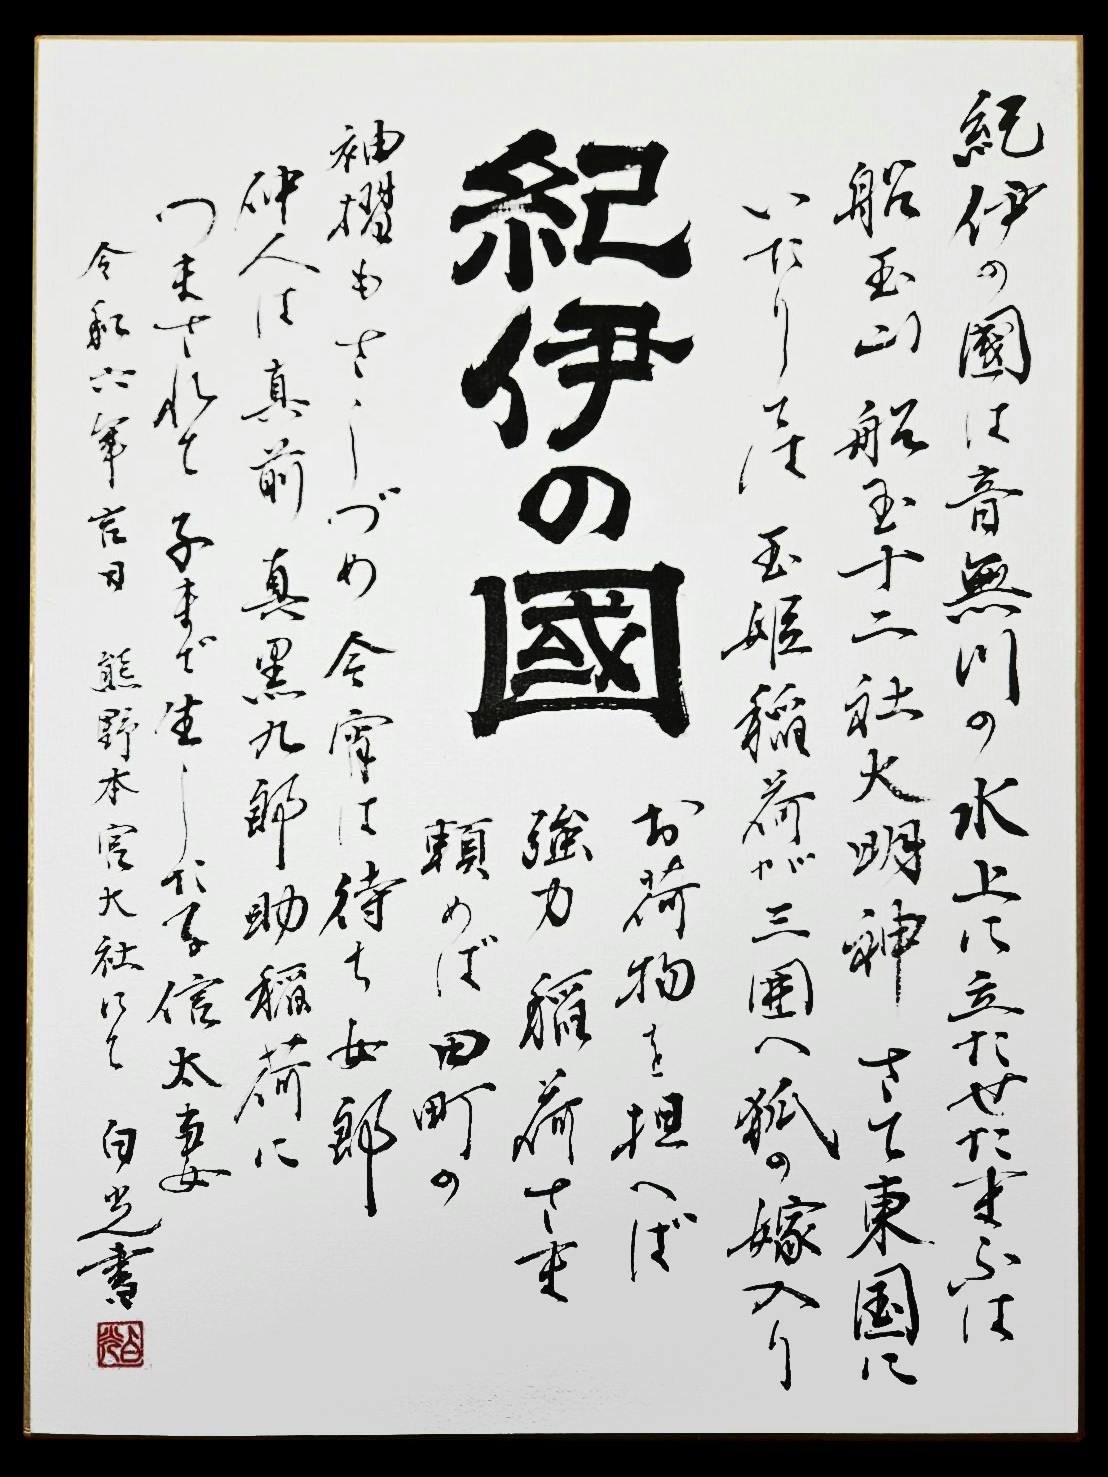 紀伊の國は音無川の水上に立たせたまふは
船玉山 船玉十二社大明神 さて東国に
いたりては 玉姫稲荷が三囲へ狐の嫁入り
紀伊の國
お荷物を担へば
強力 稲荷さま
頼めば田町の
袖摺もさしづめ今宵は待ち女郎
仲人は真前 真黒九郎助稲荷に
つまされて 子まで生した子信太妻
令和六年吉日 熊野本宮大社にて 白光書
白光